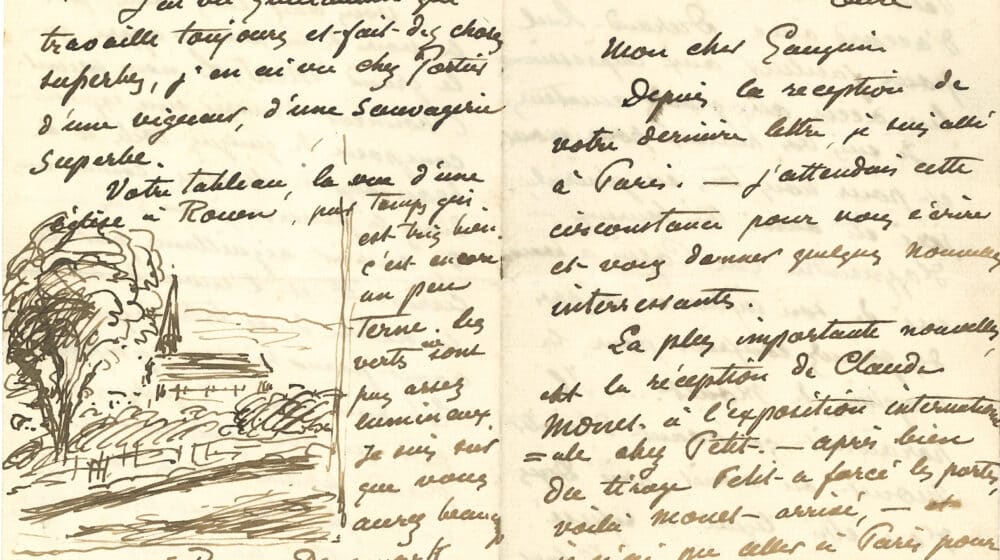 J'ai vu Guillaumin qui
travaille toujours et fait des choses
superbes, j'en ai vu chez Portier
d'une vigueur, d'une Sauvagerie
superbe.
Votre tableau, la vue d'une
église à Rouen, par temps gris
est très bien.
c'est encore
un peu
terne. les
verts ne sont
pas assez
lumineux.
Je suis sûr
que vous
aurez beaucoup
Danemark
Eure
Mon cher Gauguin
Depuis la réception de
votre dernière lettre, je suis allé
à Paris. — j'attendais cette
circonstance pour vous écrire
et vous donner quelques nouvelles
interressantes.
La plus importante nouvelle,
est la réception de Claude
Monet à l'exposition internation
=ale chez Petit. — après bien
du tirage Petit a forcé les portes,
voilà monet arrivé, — et
je n'ai pu aller à Paris pour